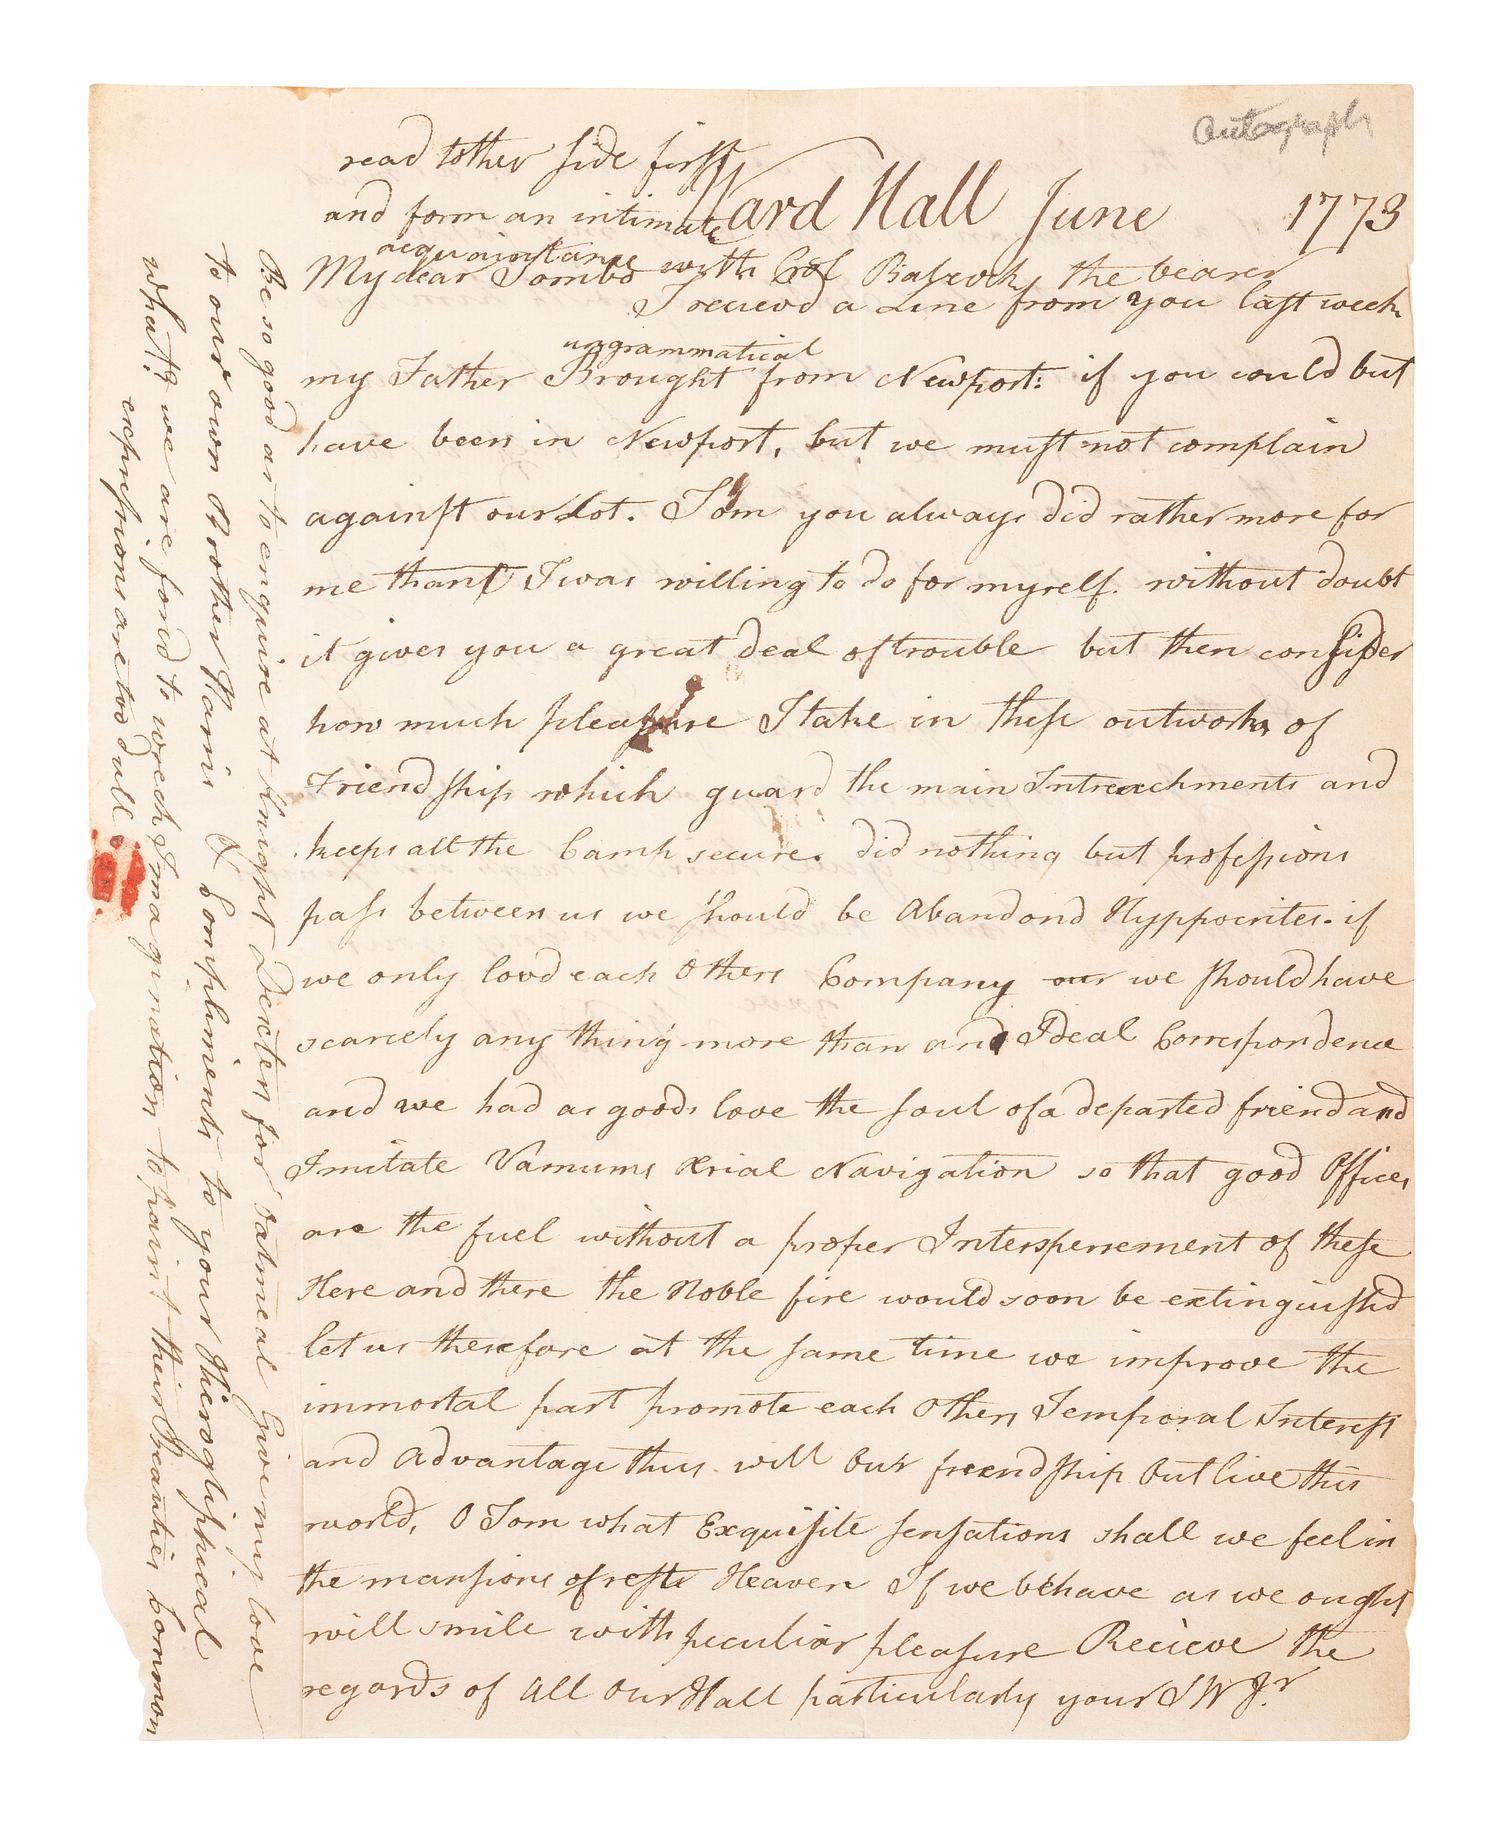 Autograph
read tother side first
and form an intimate
acquaintance with Col Babcock the bearer
Ward Hall June 1773
My dear Tombo
I recievd a Line from you last week
ungrammatical
my Father Brought from Newport: if you could but
have been in Newport, but we must not complain
against our Lot. Tom you always did rather more for
me than I was willing to do for myself. without doubt
it gives you a great deal of trouble but then consider
how much pleasure I take in these outworks of
Friendship which guard the main Intrenchments and
keeps all the Camp secure. did nothing but professions
pass between us we should be Abandond Hyppocrites. if
we only lovd each Others Company our we should have
scarcely any thing more than an Ideal Correspondence
and we had as goods love the soul of a departed friend and
Imitate Varnums Ærial Navigation so that good Offices
are the fuel without a proper Interspersement of these
Here and there the Noble fire would soon be extinguishd
let us therefore at the same time we improve the
immortal part promote each Others Temporal Interest
and Advantage thus will Our freendship Out live this
world, O Tom what Exquisite sensations shall we feel in
the mansions of rest Heaven If we behave as we ought
will smile with peculiar pleasure Recieve the
regards of All Our Hall particularly your S W Jr.
Be so good as to enquire at Knight Dexters for Oatmeal Give my love
to our own Brother Harris & Compliments to your Hierogliphical
what? we are fond to wrech Imagination to paint their Beauties Common
expressions are too dull